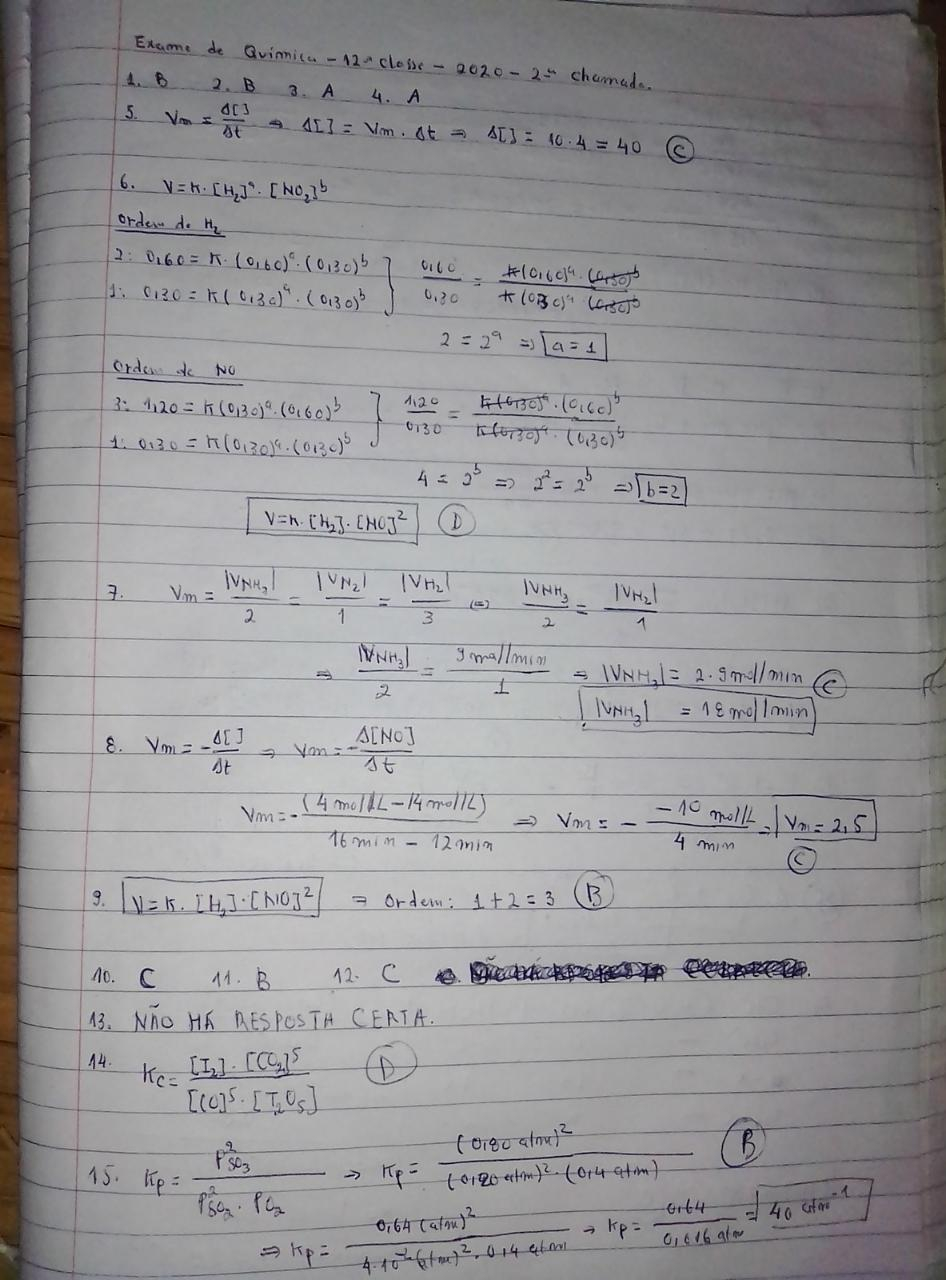 Exame de Química - 12ª classe - 2020 - 2ª chamada.
1. B 2. B 3. A 4. A
5. Vm = Δ[ ]/Δt ⇒ Δ[ ] = Vm . Δt ⇒ Δ[ ] = 10 . 4 = 40 C
6. V = K . [H₂]ᵃ . [NO₂]ᵇ
Ordem de H₂
2: 0,60 = K . (0,60)ᵃ . (0,30)ᵇ } 0,60/0,30 = K(0,60)ᵃ . (0,30)ᵇ / K(0,30)ᵃ (0,30)ᵇ
1: 0,30 = K(0,30)ᵃ . (0,30)ᵇ
2 = 2ᵃ ⇒ a = 1
Ordem de NO
3: 1,20 = K(0,30)ᵃ . (0,60)ᵇ } 1,20/0,30 = K(0,30)ᵃ . (0,60)ᵇ / K(0,30)ᵃ . (0,30)ᵇ
1: 0,30 = K(0,30)ᵃ . (0,30)ᵇ
4 = 2ᵇ ⇒ 2² = 2ᵇ ⇒ b = 2
V = K . [H₂] . [NO]² D
7. Vm = |VNH₃|/2 = |VN₂|/1 = |VH₂|/3 (=) |VNH₃/2 = |VN₂|/1
⇒ |VNH₃|/2 = 9 mol/min/1 ⇒ |VNH₃| = 2 . 9 mol/min C
|VNH₃| = 18 mol/min
8. Vm = -Δ[ ]/Δt ⇒ Vm = -Δ[NO]/Δt
Vm = -(4 mol/L - 14 mol/L)/16 min - 12 min ⇒ Vm = - -10 mol/L/4 min = Vm = 2,5
C
9. V = K . [H₂] . [NO]² ⇒ Ordem: 1 + 2 = 3 B
10. C 11. B 12. C
13. NÃO HÁ RESPOSTA CERTA.
14. Kc = [I₂] . [CO₂]⁵/[CO]⁵ . [I₂O₅] D
15. Kp = P²SO₃/P²SO₂ . PO₂ ⇒ Kp = (0,80 atm)²/(0,20 atm)² . (0,4 atm) B
⇒ Kp = 0,64 (atm)²/4.10⁻² (atm)² . 0,4 atm ⇒ Kp = 0,64/0,016 atm = 40 atm⁻¹